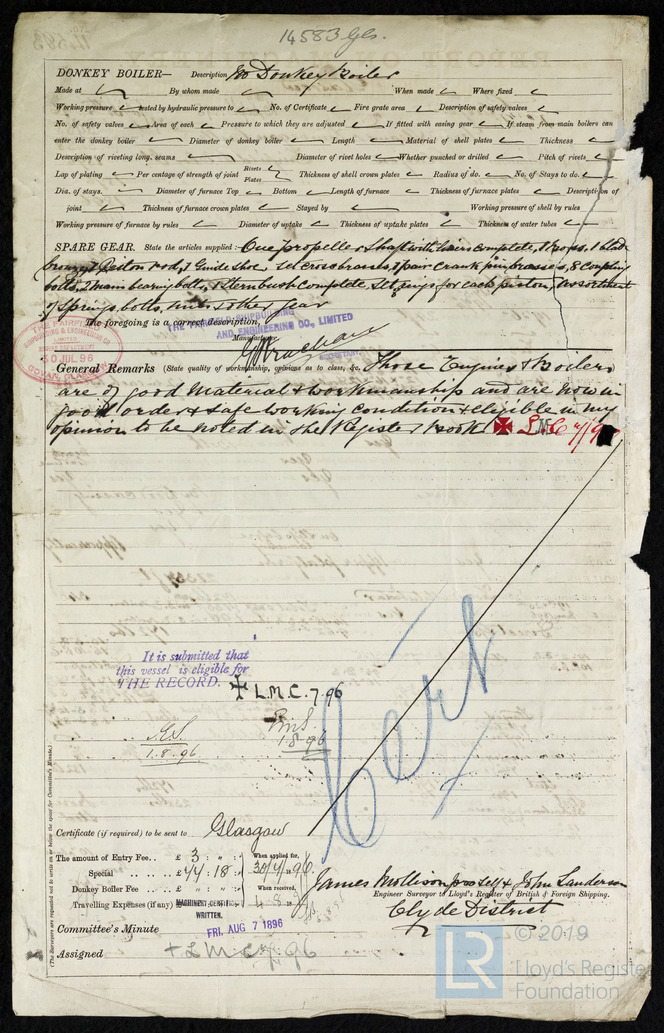 14583 Gls.
DONKEY BOILER— Description No Donkey Boiler
Made at By whom made When made Where fixed
Working pressure tested by hydraulic pressure to No. of Certificate Fire grate area Description of safety valves
No. of safety valves Area of each Pressure to which they are adjusted If fitted with easing gear If steam from main boilers can
enter the donkey boiler Diameter of donkey boiler Length Material of shell plates Thickness
Description of riveting long. seams Diameter of rivet holes Whether punched or drilled Pitch of rivets
Lap of plating Per centage of strength of joint Rivets Plates Thickness of shell crown plates Radius of do. No. of Stays to do.
Dia. of stays. Diameter of furnace Top Bottom Length of furnace Thickness of furnace plates Description of
joint Thickness of furnace crown plates Stayed by Working pressure of shell by rules
Working pressure of furnace by rules Diameter of uptake Thickness of uptake plates Thickness of water tubes
SPARE GEAR. State the articles supplied:— One propeller shaft with liners complete, 1 boss, 1 blade
bronze, 1 Piston rod, 1 Guide Shoe, set cross brasses, 1 pair crank pin brasses, 8 coupling
bolts, 2 main bearing bolts, 1 Stern bush complete, Set rings for each piston, assortment
of Springs, bolts, nuts & other gear
The foregoing is a correct description,
THE FAIRFIELD SHIPBUILDING
AND ENGINEERING CO., LIMITED
Manufacturer.
SECRETARY.
THE FAIRFIELD
SHIPBUILDING & ENGINEERING CO.
LIMITED.
30 JUL 96
GOVAN, GLASGOW
General Remarks (State quality of workmanship, opinions as to class, &c. These Engines & Boilers
are of good material & workmanship and are now in
good order & safe working condition & eligible in my
opinion to be noted in the Register Book ✠ LMC 7/96
It is submitted that
this vessel is eligible for
THE RECORD. ✠ L.M.C. 7.96
1.8.96
1.8.96
Cert
Certificate (if required) to be sent to Glasgow
The amount of Entry Fee.. £ 3 : " : " When applied for,
Special .. £ 44 : 18 : "
Donkey Boiler Fee .. £ " : " : " When received,
Travelling Expenses (if any) £
MACHINERY CERTIFICATE
WRITTEN.
James Mollison pro self & John Sanderson
Engineer Surveyor to Lloyd's Register of British & Foreign Shipping.
Clyde District
Committee's Minute FRI. AUG 7 1896
Assigned + L M C 7.96
(The Surveyors are requested not to write on or below the space for Committee's Minute.)
LR
© 2019
Lloyd's Register
Foundation